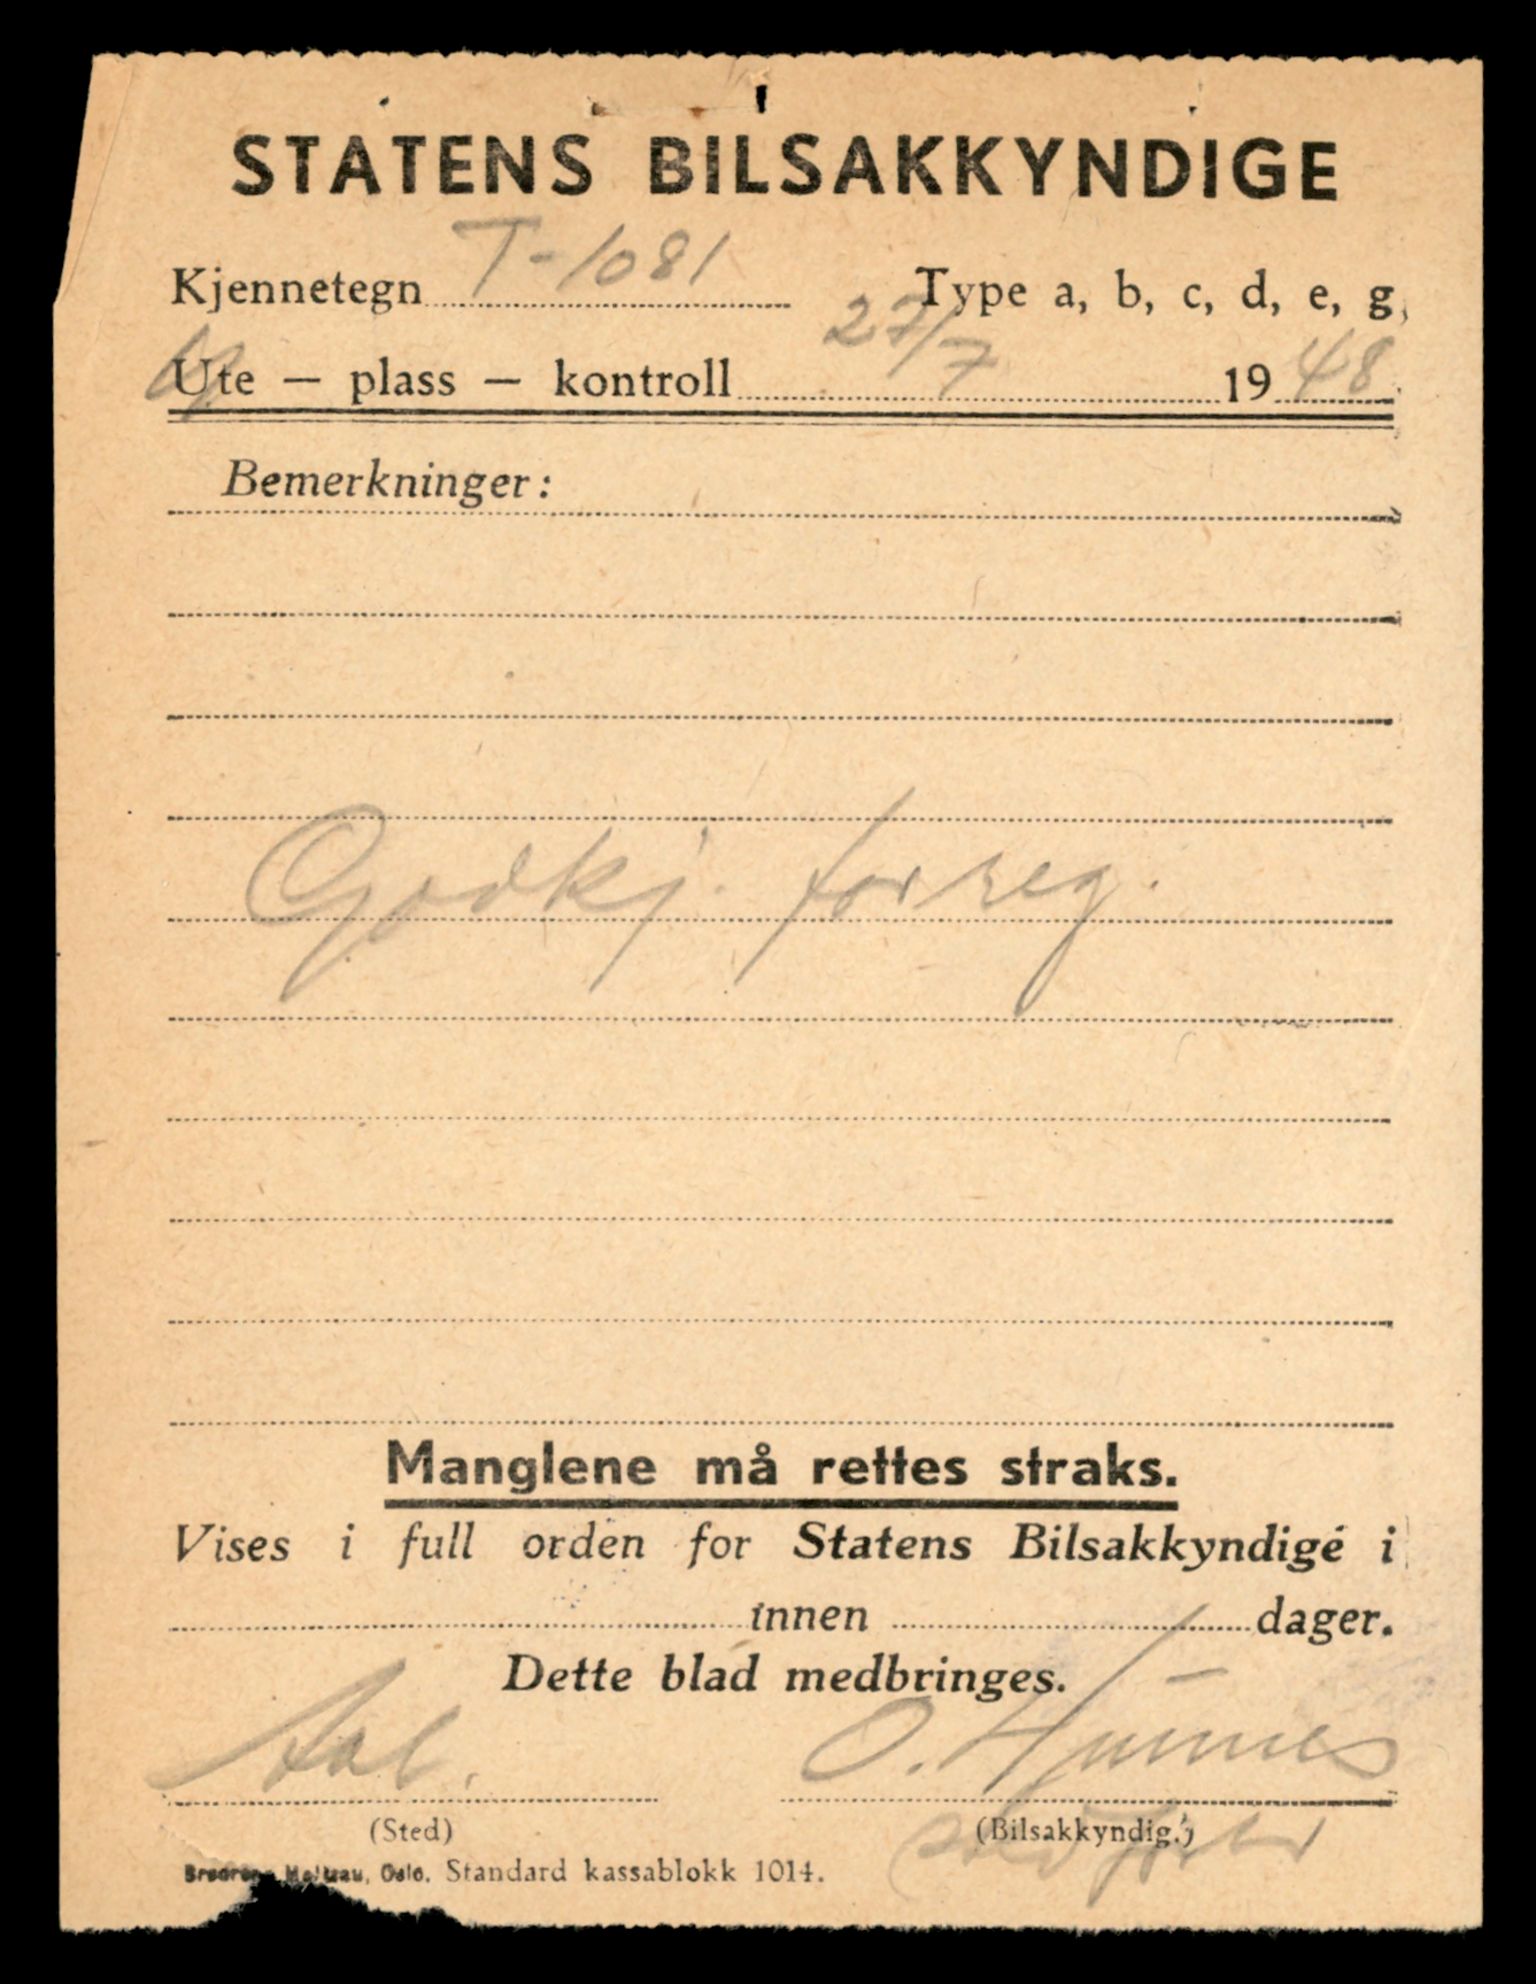 STATENS BILSAKKYNDIGE
Kjennetegn T-1081 Type a, b, c, d, e, g,
Ute — plass — kontroll 27/7 1948.
Bemerkninger:
Godkj. for reg.
Manglene må rettes straks.
Vises i full orden for Statens Bilsakkyndige i
innen dager.
Dette blad medbringes.
Aal. O.
(Sted) (Bilsakkyndig.)
Oslo. Standard kassablokk 1014.